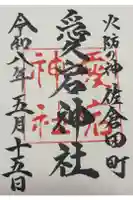 火防の神 佐倉田町
愛宕神社
愛宕
神社
令和八年五月十五日